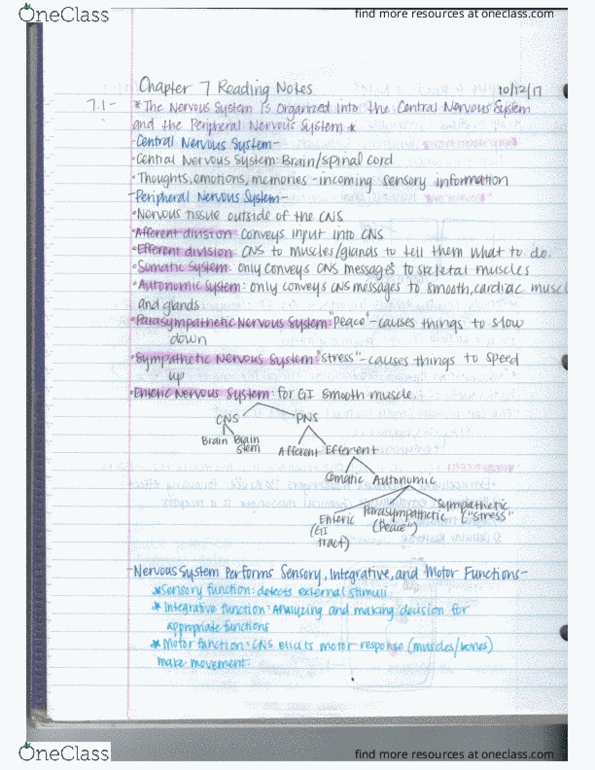 OneClass
find more resources at oneclass.com
Chapter 7 Reading Notes
10/12/17
7.1-
*The Nervous System is Organized into the Central Nervous System
and the Peripheral Nervous System *
-Central Nervous System-
•Central Nervous System: Brain/spinal cord
•Thoughts, emotions, memories -incoming sensory information
-Peripheral Nervous System-
•Nervous tissue outside of the CNS
•Afferent division: conveys input into CNS
•Efferent division: CNS to muscles/glands to tell them what to do.
•Somatic System: only conveys CNS messages to skeletal muscles
•Autonomic System: only conveys CNS messages to smooth, cardiac muscl
and glands
•Parasympathetic Nervous System: "Peace"-causes things to slow
down
•Sympathetic Nervous System: "stress"-causes things to speed
up
•Enteric Nervous System: for GI smooth muscle.
CNS PNS
Brain Brain stem
Afferent Efferent
Somatic Autonomic
Enteric (GI tract)
Parasympathetic (Peace")
Sympathetic ("stress"
-Nervous System Performs Sensory, Integrative, and Motor Functions-
*Sensory function: detects external stimuli
*Integrative function: Analyzing and making decision for
appropriate functions
*Motor function: CNS elicits motor response (muscles/bones)
make movement.
OneClass
find more resources at oneclass.com